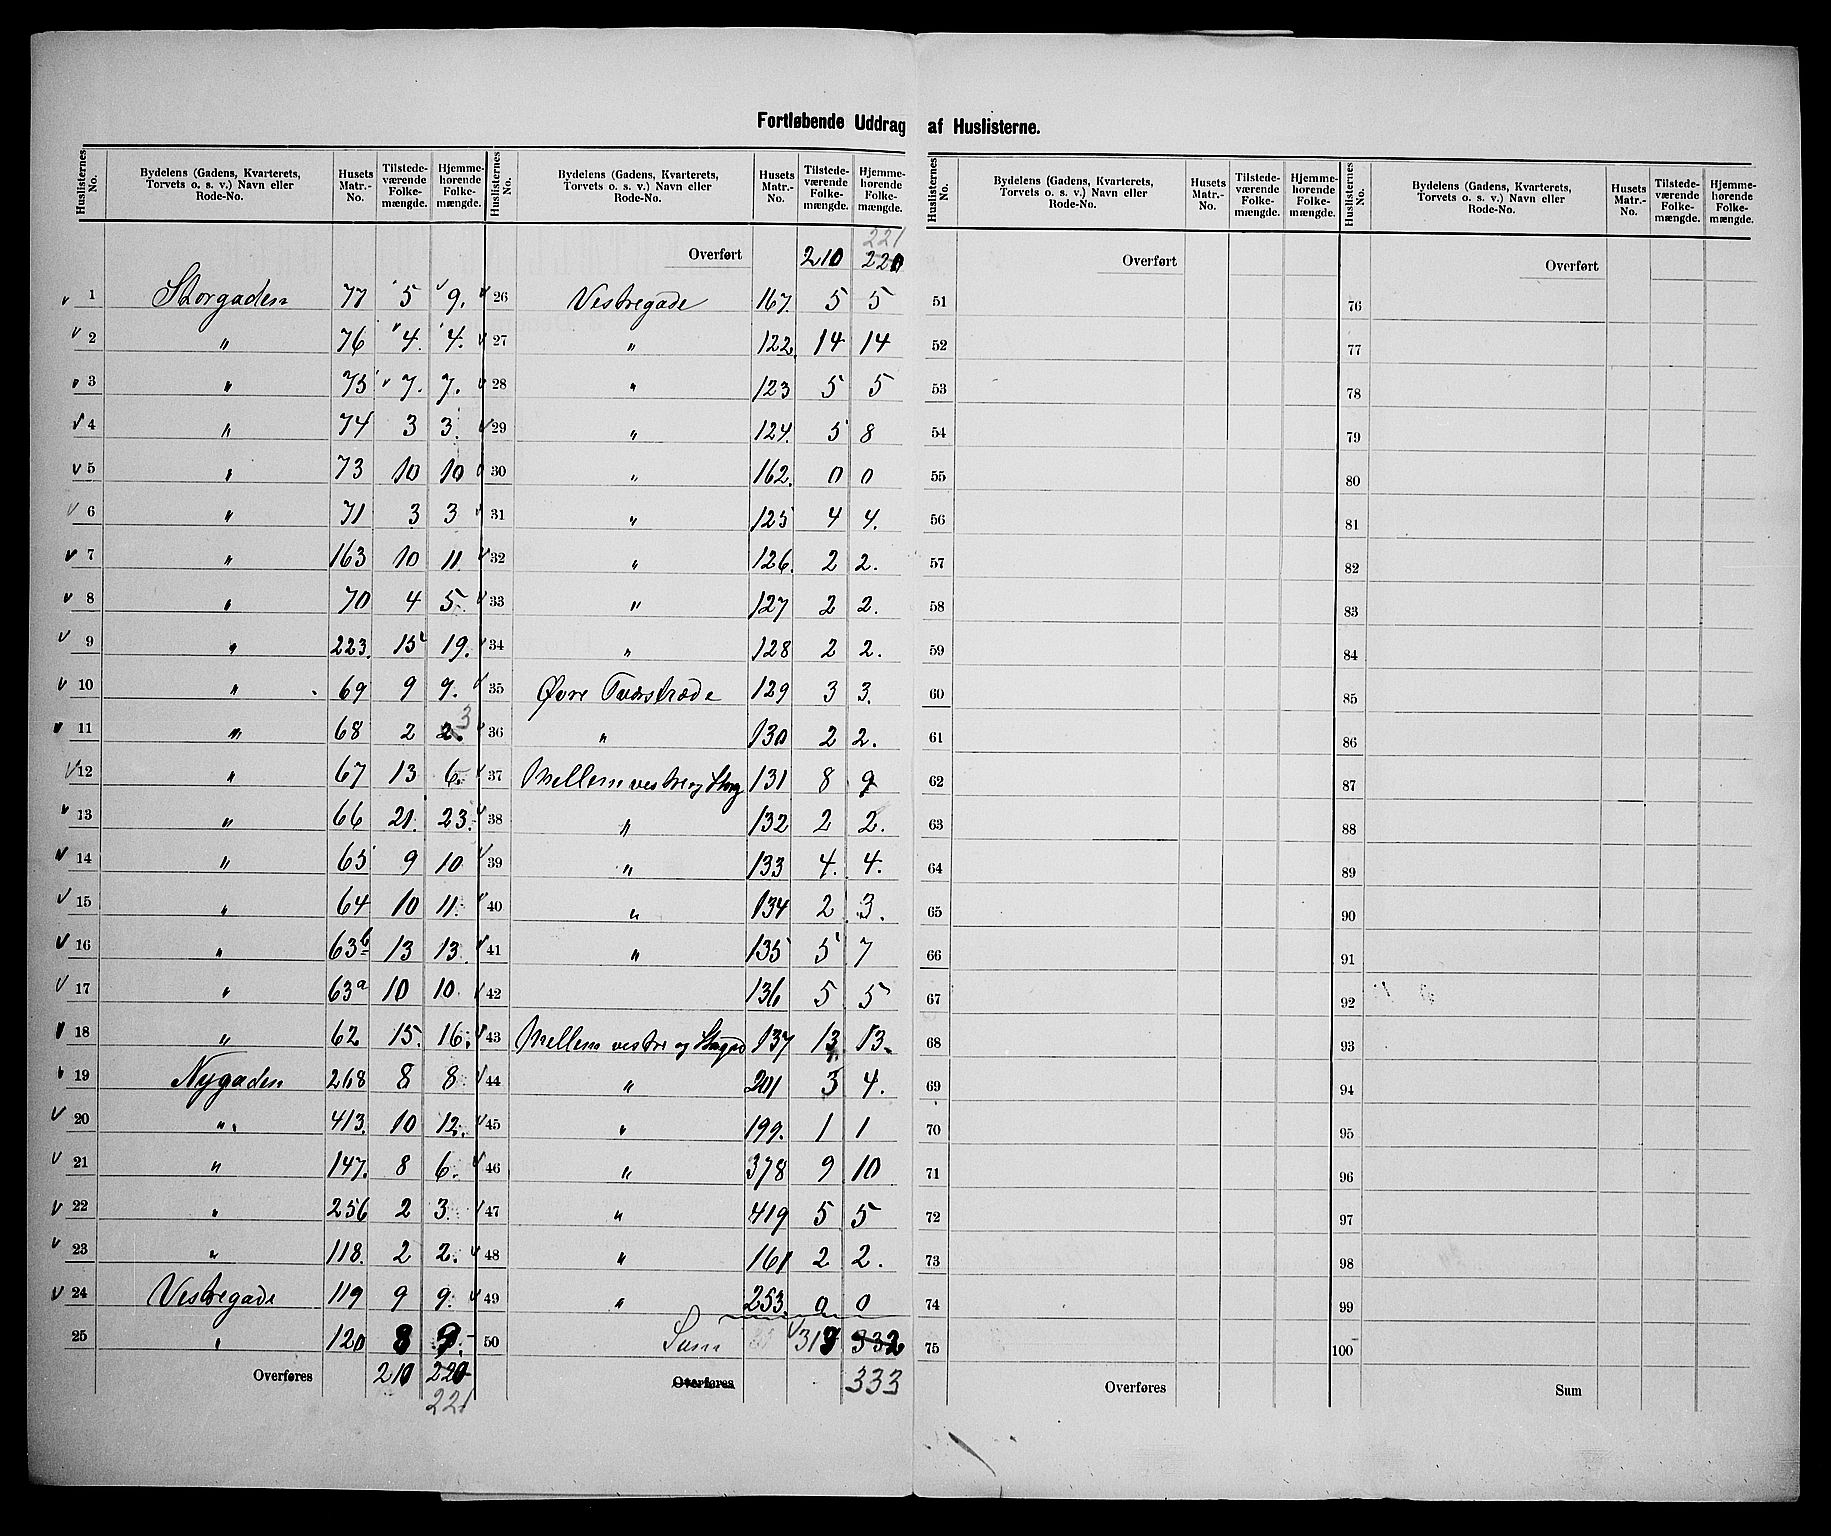 Fortløbende Uddrag af Huslisterne.
Huslisternes No. | Bydelens (Gadens, Kvarterets, Torvets o. s. v.) Navn eller Rode-No. | Husets Matr.-No. | Tilstedeværende Folkemængde. | Hjemmehørende Folkemængde.
1 Storgaden 77 5 9.
2 " 76 4. 4.
3 " 75 7. 7.
4 " 74 3 3.
5 " 73 10 10
6 " 71 3 3
7 " 163 10 11
8 " 70 4 5.
9 " 223. 15 19.
10 " 69 9 9.
11 " 68 2 2. 3
12 " 67 13 6.
13 " 66 21. 23.
14 " 65 9 10
15 " 64 10 11.
16 " 63b 13 13.
17 " 63a 10 10.
18 " 62 15. 16.
19 Nygaden 268 8 8.
20 " 413. 10 12.
21 " 147. 8 6.
22 " 256 2 3.
23 " 118. 2 2.
24 Vestregade 119 9 9.
25 " 120 8 9.
Overføres 210 220
221
Huslisternes No. | Bydelens (Gadens, Kvarterets, Torvets o. s. v.) Navn eller Rode-No. | Husets Matr.-No. | Tilstedeværende Folkemængde. | Hjemmehørende Folkemængde.
221
Overført 210 220
26 Vestregade 167. 5 5
27 " 122. 14 14
28 " 123 5 5
29 " 124. 5 8
30 " 162. 0 0
31 " 125 4 4.
32 " 126. 2 2.
33 " 127 2 2.
34 " 128 2 2.
35 Øvre Tværstræde 129 3 3.
36 " 130 2 2.
37 Mellem vestre og Storg 131 8 9
38 " 132 2 2.
39 " 133 4. 4.
40 " 134 2 3.
41 " 135 5 7
42 136 5 5
43 Mellem vestre og Storgad 137 13 13.
44 " 201 3 4.
45 " 199. 1 1
46 " 378 9 10
47 " 419 5 5
48 " 161 2 2.
49 " 253. 0 0
50 Sum 317 332
Overføres 333
Huslisternes No. | Bydelens (Gadens, Kvarterets, Torvets o. s. v.) Navn eller Rode-No. | Husets Matr.-No. | Tilstedeværende Folkemængde. | Hjemmehørende Folkemængde.
Overført
51
52
53
54
55
56
57
58
59
60
61
62
63
64
65
66
67
68
69
70
71
72
73
74
75
Overføres
Huslisternes No. | Bydelens (Gadens, Kvarterets, Torvets o. s. v.) Navn eller Rode-No. | Husets Matr.-No. | Tilstedeværende Folkemængde. | Hjemmehørende Folkemængde.
Overført
76
77
78
79
80
81
82
83
84
85
86
87
88
89
90
91
92
93
94
95
96
97
98
99
100
Sum